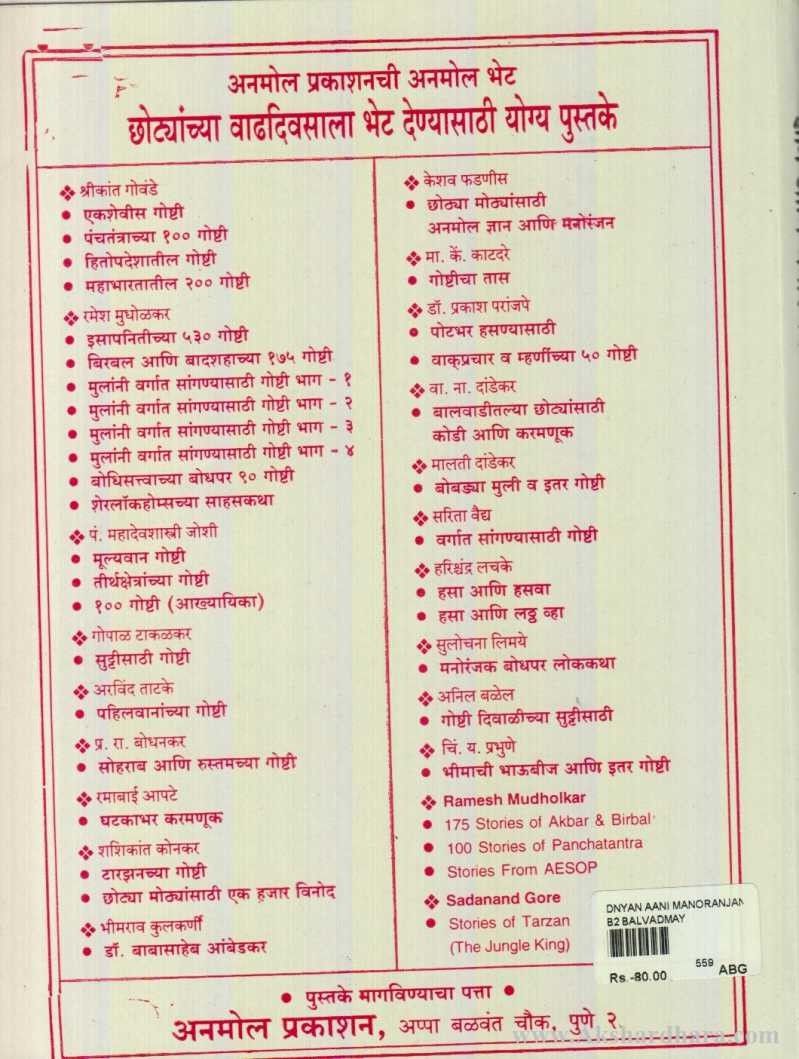 अनमोल प्रकाशनची अनमोल भेट
छोट्यांच्या वाढदिवसाला भेट देण्यासाठी योग्य पुस्तके
❖ श्रीकांत गोवंडे
● एकशेवीस गोष्टी
● पंचतंत्राच्या १०० गोष्टी
● हितोपदेशातील गोष्टी
● महाभारतातील २०० गोष्टी
❖ रमेश मुधोळकर
● इसापनितीच्या ५३० गोष्टी
● बिरबल आणि बादशहाच्या १७५ गोष्टी
● मुलांनी वर्गात सांगण्यासाठी गोष्टी भाग - १
● मुलांनी वर्गात सांगण्यासाठी गोष्टी भाग - २
● मुलांनी वर्गात सांगण्यासाठी गोष्टी भाग - ३
● मुलांनी वर्गात सांगण्यासाठी गोष्टी भाग - ४
● बोधिसत्त्वाच्या बोधपर ९० गोष्टी
● शेरलॉकहोम्सच्या साहसकथा
❖ पं. महादेवशास्त्री जोशी
● मूल्यवान गोष्टी
● तीर्थक्षेत्रांच्या गोष्टी
● १०० गोष्टी (आख्यायिका)
❖ गोपाळ टाकळकर
● सुट्टीसाठी गोष्टी
❖ अरविंद ताटके
● पहिलवानांच्या गोष्टी
❖ प्र. रा. बोधनकर
● सोहराब आणि रुस्तमच्या गोष्टी
❖ रमाबाई आपटे
● घटकाभर करमणूक
❖ शशिकांत कोनकर
● टारझनच्या गोष्टी
● छोट्या मोठ्यांसाठी एक हजार विनोद
❖ भीमराव कुलकर्णी
● डॉ. बाबासाहेब आंबेडकर
❖ केशव फडणीस
● छोट्या मोठ्यांसाठी
अनमोल ज्ञान आणि मनोरंजन
❖ मा. कें. काटदरे
● गोष्टीचा तास
❖ डॉ. प्रकाश परांजपे
● पोटभर हसण्यासाठी
● वाक्प्रचार व म्हणींच्या ५० गोष्टी
❖ वा. ना. दांडेकर
● बालवाडीतल्या छोट्यांसाठी
कोडी आणि करमणूक
❖ मालती दांडेकर
● बोबड्या मुली व इतर गोष्टी
❖ सरिता वैद्य
● वर्गात सांगण्यासाठी गोष्टी
❖ हरिश्चंद्र लचके
● हसा आणि हसवा
● हसा आणि लठ्ठ व्हा
❖ सुलोचना लिमये
● मनोरंजक बोधपर लोककथा
❖ अनिल बळेल
● गोष्टी दिवाळीच्या सुट्टीसाठी
❖ चिं. य. प्रभुणे
● भीमाची भाऊबीज आणि इतर गोष्टी
❖ Ramesh Mudholkar
● 175 Stories of Akbar & Birbal
● 100 Stories of Panchatantra
● Stories From AESOP
❖ Sadanand Gore
● Stories of Tarzan
(The Jungle King)
DNYAN AANI MANORANJAN
B2 BALVADMAY
Rs.-80.00 559 ABG
● पुस्तके मागविण्याचा पत्ता ●
अनमोल प्रकाशन, अप्पा बळवंत चौक, पुणे २
www.Akshardhara.com